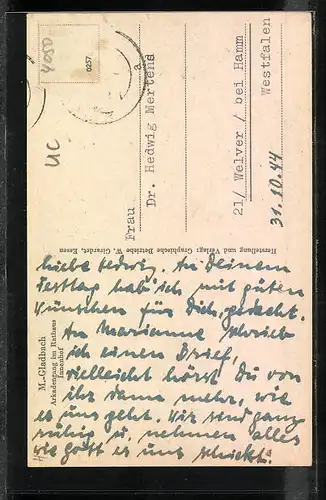 4050
0257
UC
a
Frau
Dr. Hedwig Mertens
21/ Welver / bei Hamm
Westfalen
31.10.44
Herstellung und Verlag: Graphische Betriebe W. Girardet, Essen
M.-Gladbach
Arkadengang im Rathaus
Innenhof
Liebe Hedwig. An Deinem
Festtag hab ich mit guten
Wünschen für Dich, gedacht.
An Marianne schrieb
ich einen Brief,
vielleicht hörst Du von
ihr dann mehr, wie
es uns geht. Wir sind ganz
ruhig u. nehmen alles
wie Gott es uns schickt.